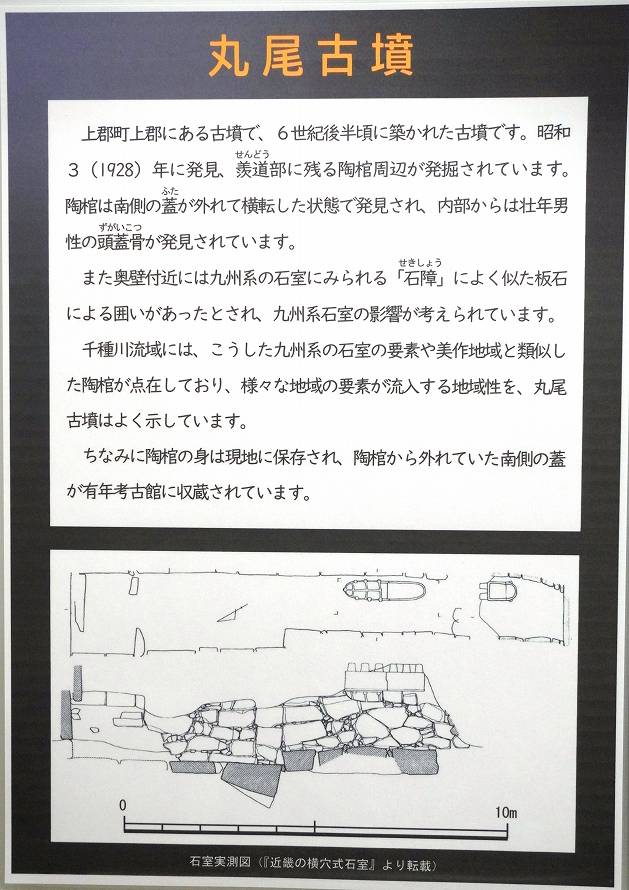 丸尾古墳
上郡町上郡にある古墳で、6世紀後半頃に築かれた古墳です。昭和
3（1928）年に発見、羨道部に残る陶棺周辺が発掘されています。
せんどう
陶棺は南側の蓋が外れて横転した状態で発見され、内部からは壮年男
ふた
性の頭蓋骨が発見されています。
ずがいこつ
また奥壁付近には九州系の石室にみられる「石障」によく似た板石
せきしょう
による囲いがあったとされ、九州系石室の影響が考えられています。
千種川流域には、こうした九州系の石室の要素や美作地域と類似し
た陶棺が点在しており、様々な地域の要素が流入する地域性を、丸尾
古墳はよく示しています。
ちなみに陶棺の身は現地に保存され、陶棺から外れていた南側の蓋
が有年考古館に収蔵されています。
0
10m
石室実測図（『近畿の横穴式石室』より転載）